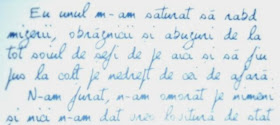 Eu unul m-am săturat să rabd
mizerii, obrăznicii și abuzuri de la
tot soiul de șefi de pe aici și să fiu
pus la colț pe nedrept de cei de afară.
N-am furat, n-am omorât pe nimeni
și nici n-am dat vreo lovitură de stat